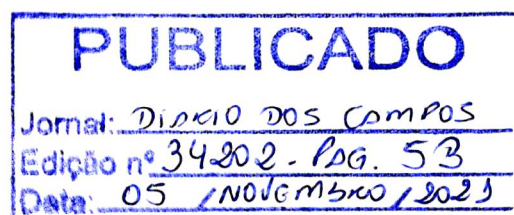 PUBLICADO
Jornal: DIÁRIO DOS CAMPOS
Edição nº 34202 - PÁG. 5B
Data: 05 / NOVEMBRO / 2021